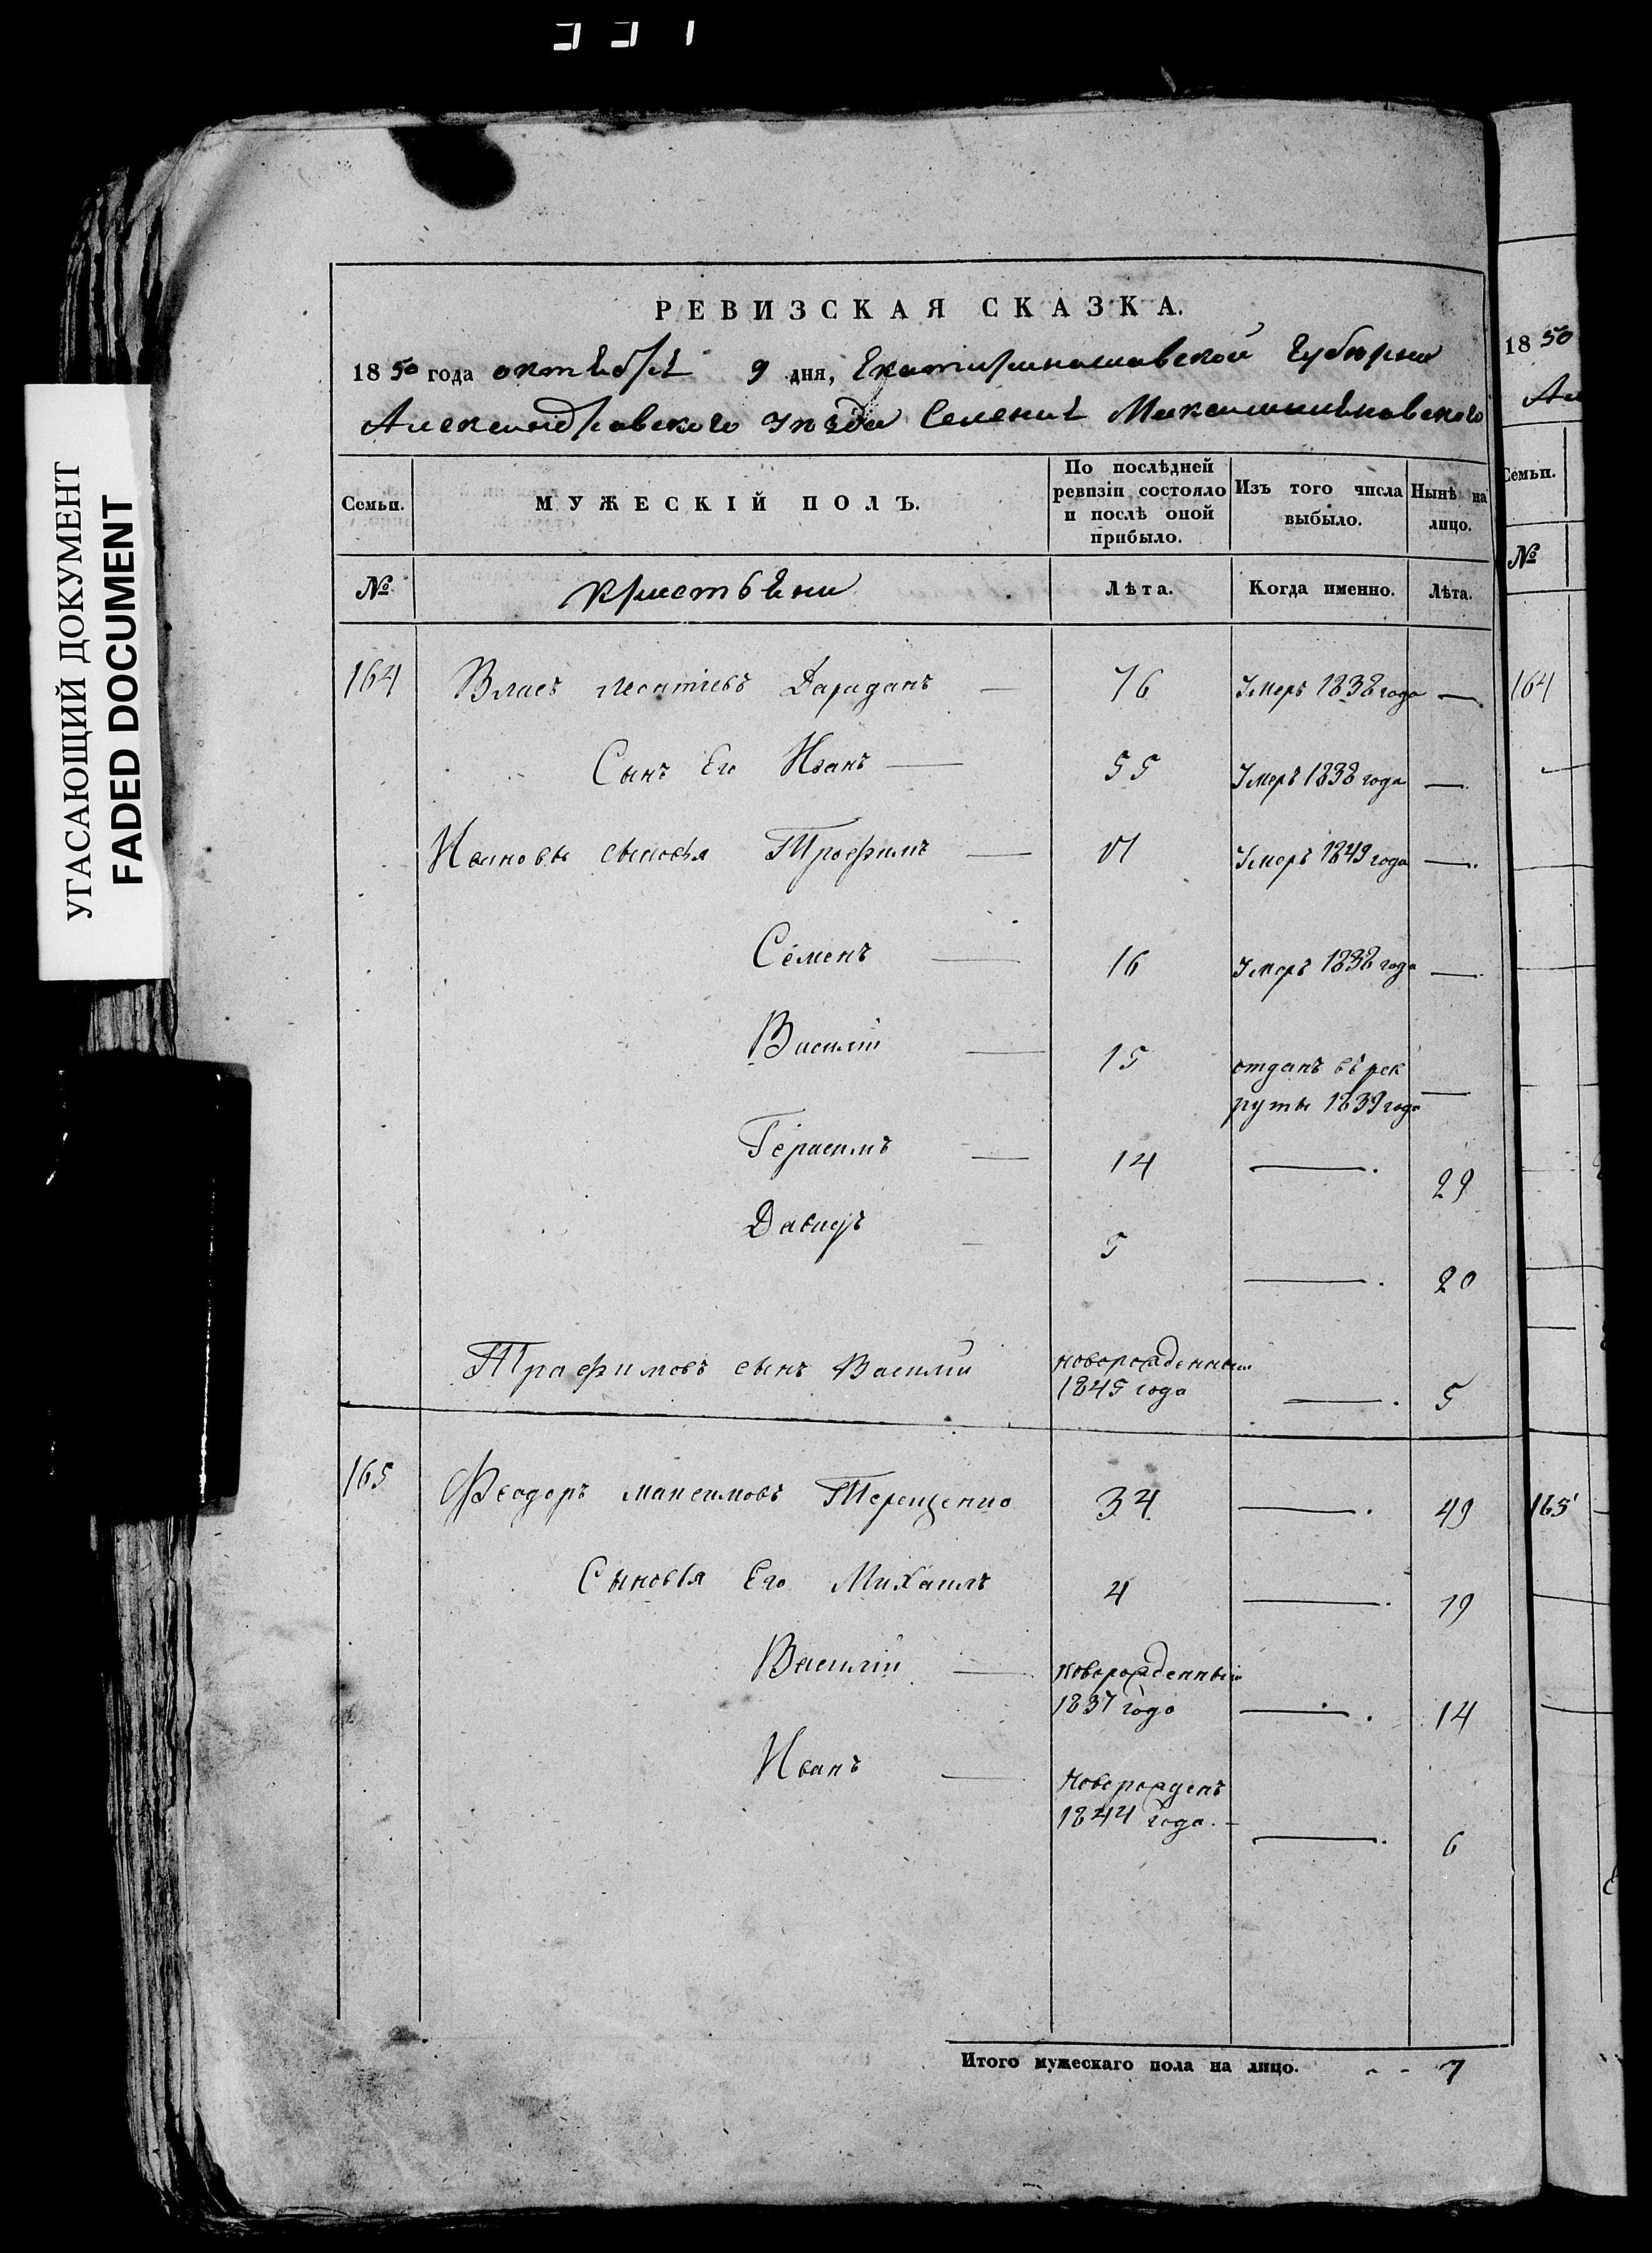 УГАСАЮЩИЙ ДОКУМЕНТ
FADED DOCUMENT
РЕВИЗСКАЯ СКАЗКА.
1850 года октября 9 дня, Екатеринославской Губернии
Александровского Уезда Селения
Семьи. МУЖЕСКІЙ ПОЛЪ. По послѣдней ревизіи состояло и послѣ оной прибыло. Изъ того числа выбыло. Нынѣ на лицо.
№ Лѣта. Когда именно. Лѣта.
164 Власъ Леонтіевъ Дараданъ — 76 Умеръ 1838 года —
Сынъ Его Иванъ — 55 Умеръ 1838 года —
Ивановы сыновья Трофимъ — Умеръ 1849 года —
Семенъ — 16 Умеръ 1838 года —
Василій — 15 отданъ въ рек
руты 1839 года —
Герасимъ — 14 — 29
Давидъ - 5 — 20
Трафимовъ сынъ Василий новорожденный
1845 года — 5
165 Феодоръ максимовъ Терещенко 34 — 49
Сыновья Его Михаилъ 4 — 19
Василій — новорожденный
1837 года — 14
Иванъ — Новорожденъ
1844 года. — 6
Итого мужескаго пола на лицо. - - 7
1850
Семьи.
№
164
165